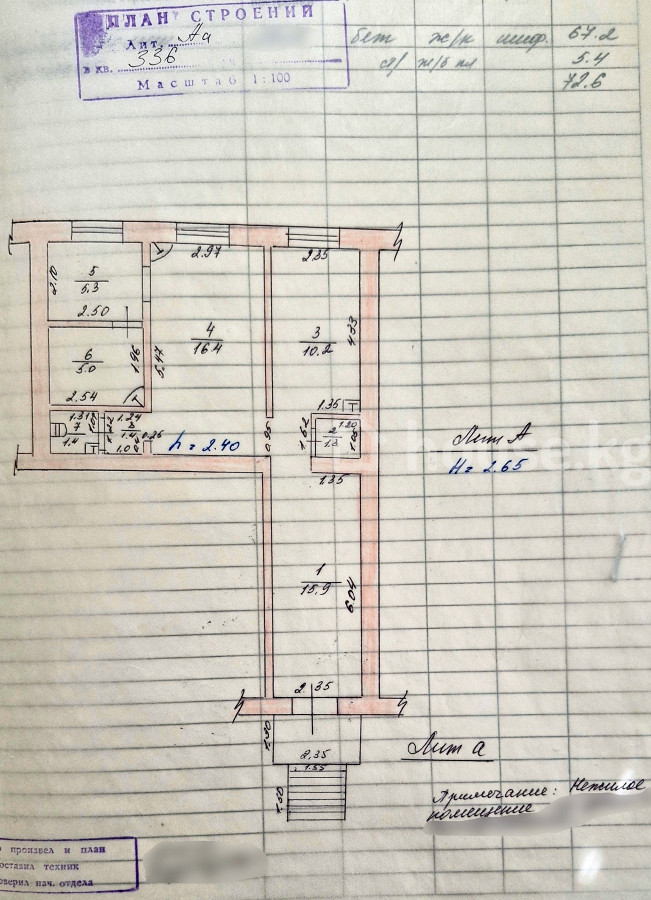 ПЛАН СТРОЕНИЙ
Лит. Аа
в кв. 336
Масштаб 1:100
бет ж/к шиф. 67.2
ж/б пл 5.4
72.6
2.97
2.35
2.10
5
5.3
2.50
4
16.4
3
10.2
4.33
6
5.0
1.96
5.47
2.54
1.35
1.31
7
1.4
1.24
8
1.4
1.0
0.26
h = 2.40
0.95
1.62
2
1.3
1.20
1.35
Лит А
H = 2.65
house.kg
1
15.9
6.04
2.35
2.35
1.55
Лит а
Примечание: Нежилое
помещение
произвел и план
составил техник
оверил нач. отдела